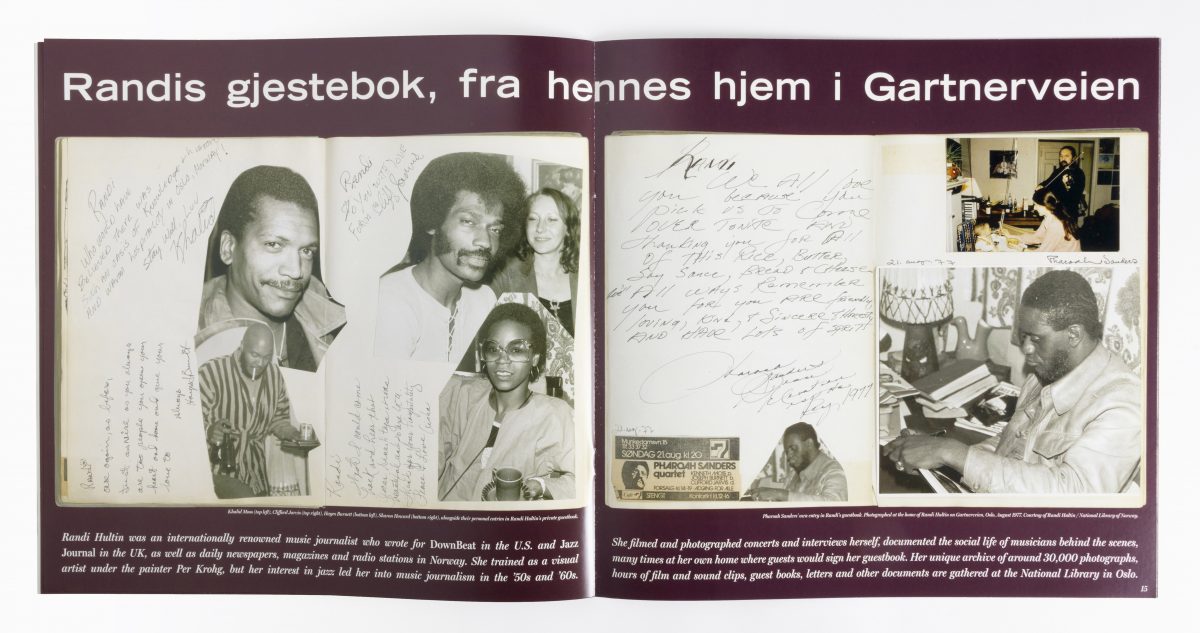 Randis gjestebok, fra hennes hjem i Gartnerveien
Randi
Who would have
believed there was
such an oasis of Knowledge +
AND warm hospitality in Oslo, Norway!
Stay well,
Khalid
Randi
To You with LOVE
From
Clifford Jarvis
Randi
once again, as before,
as you always
are to people you open your
heart and home and give your
love to
Always
Hayes Burnett
Randi
Randi
We All love
you because you
PICK US TO COME
OVER TONITE AND
thanking you FOR All
OF THIS RICE, BUTTER,
Soy Sauce, BREAD & CHEESE
All WAYS Remember
you FOR you ARE friendly,
loving, KIND, & SINCERE & Honesty
AND HAVE LOTS OF SPIRIT
Pharoah
Sanders
1977
21 aug 77
Pharoah Sanders
Munkedamsvn. 15
SØNDAG 21.aug. kl 20
7
PHAROAH SANDERS
quartet
KENNETH MOSS, p
JOSEPH BURNETT, b
CLIFFORD JARVIS, tr
FORSALG kl 14-19 - ADGANG FOR ALLE
STENGT
Kontortit kl.12-16
Khalid Moss (top left), Clifford Jarvis (top right), Hayes Burnett (bottom left), Sharon Howard (bottom right), alongside their personal entries in Randi Hultin's private guestbook.
Pharoah Sanders' own entry in Randi's guestbook. Photographed at the home of Randi Hultin on Gartnerveien, Oslo, August 1977. Courtesy of Randi Hultin / National Library of Norway.
Randi Hultin was an internationally renowned music journalist who wrote for DownBeat in the U.S. and Jazz
Journal in the UK, as well as daily newspapers, magazines and radio stations in Norway. She trained as a visual
artist under the painter Per Krohg, but her interest in jazz led her into music journalism in the '50s and '60s.
She filmed and photographed concerts and interviews herself, documented the social life of musicians behind the scenes,
many times at her own home where guests would sign her guestbook. Her unique archive of around 30,000 photographs,
hours of film and sound clips, guest books, letters and other documents are gathered at the National Library in Oslo.
15